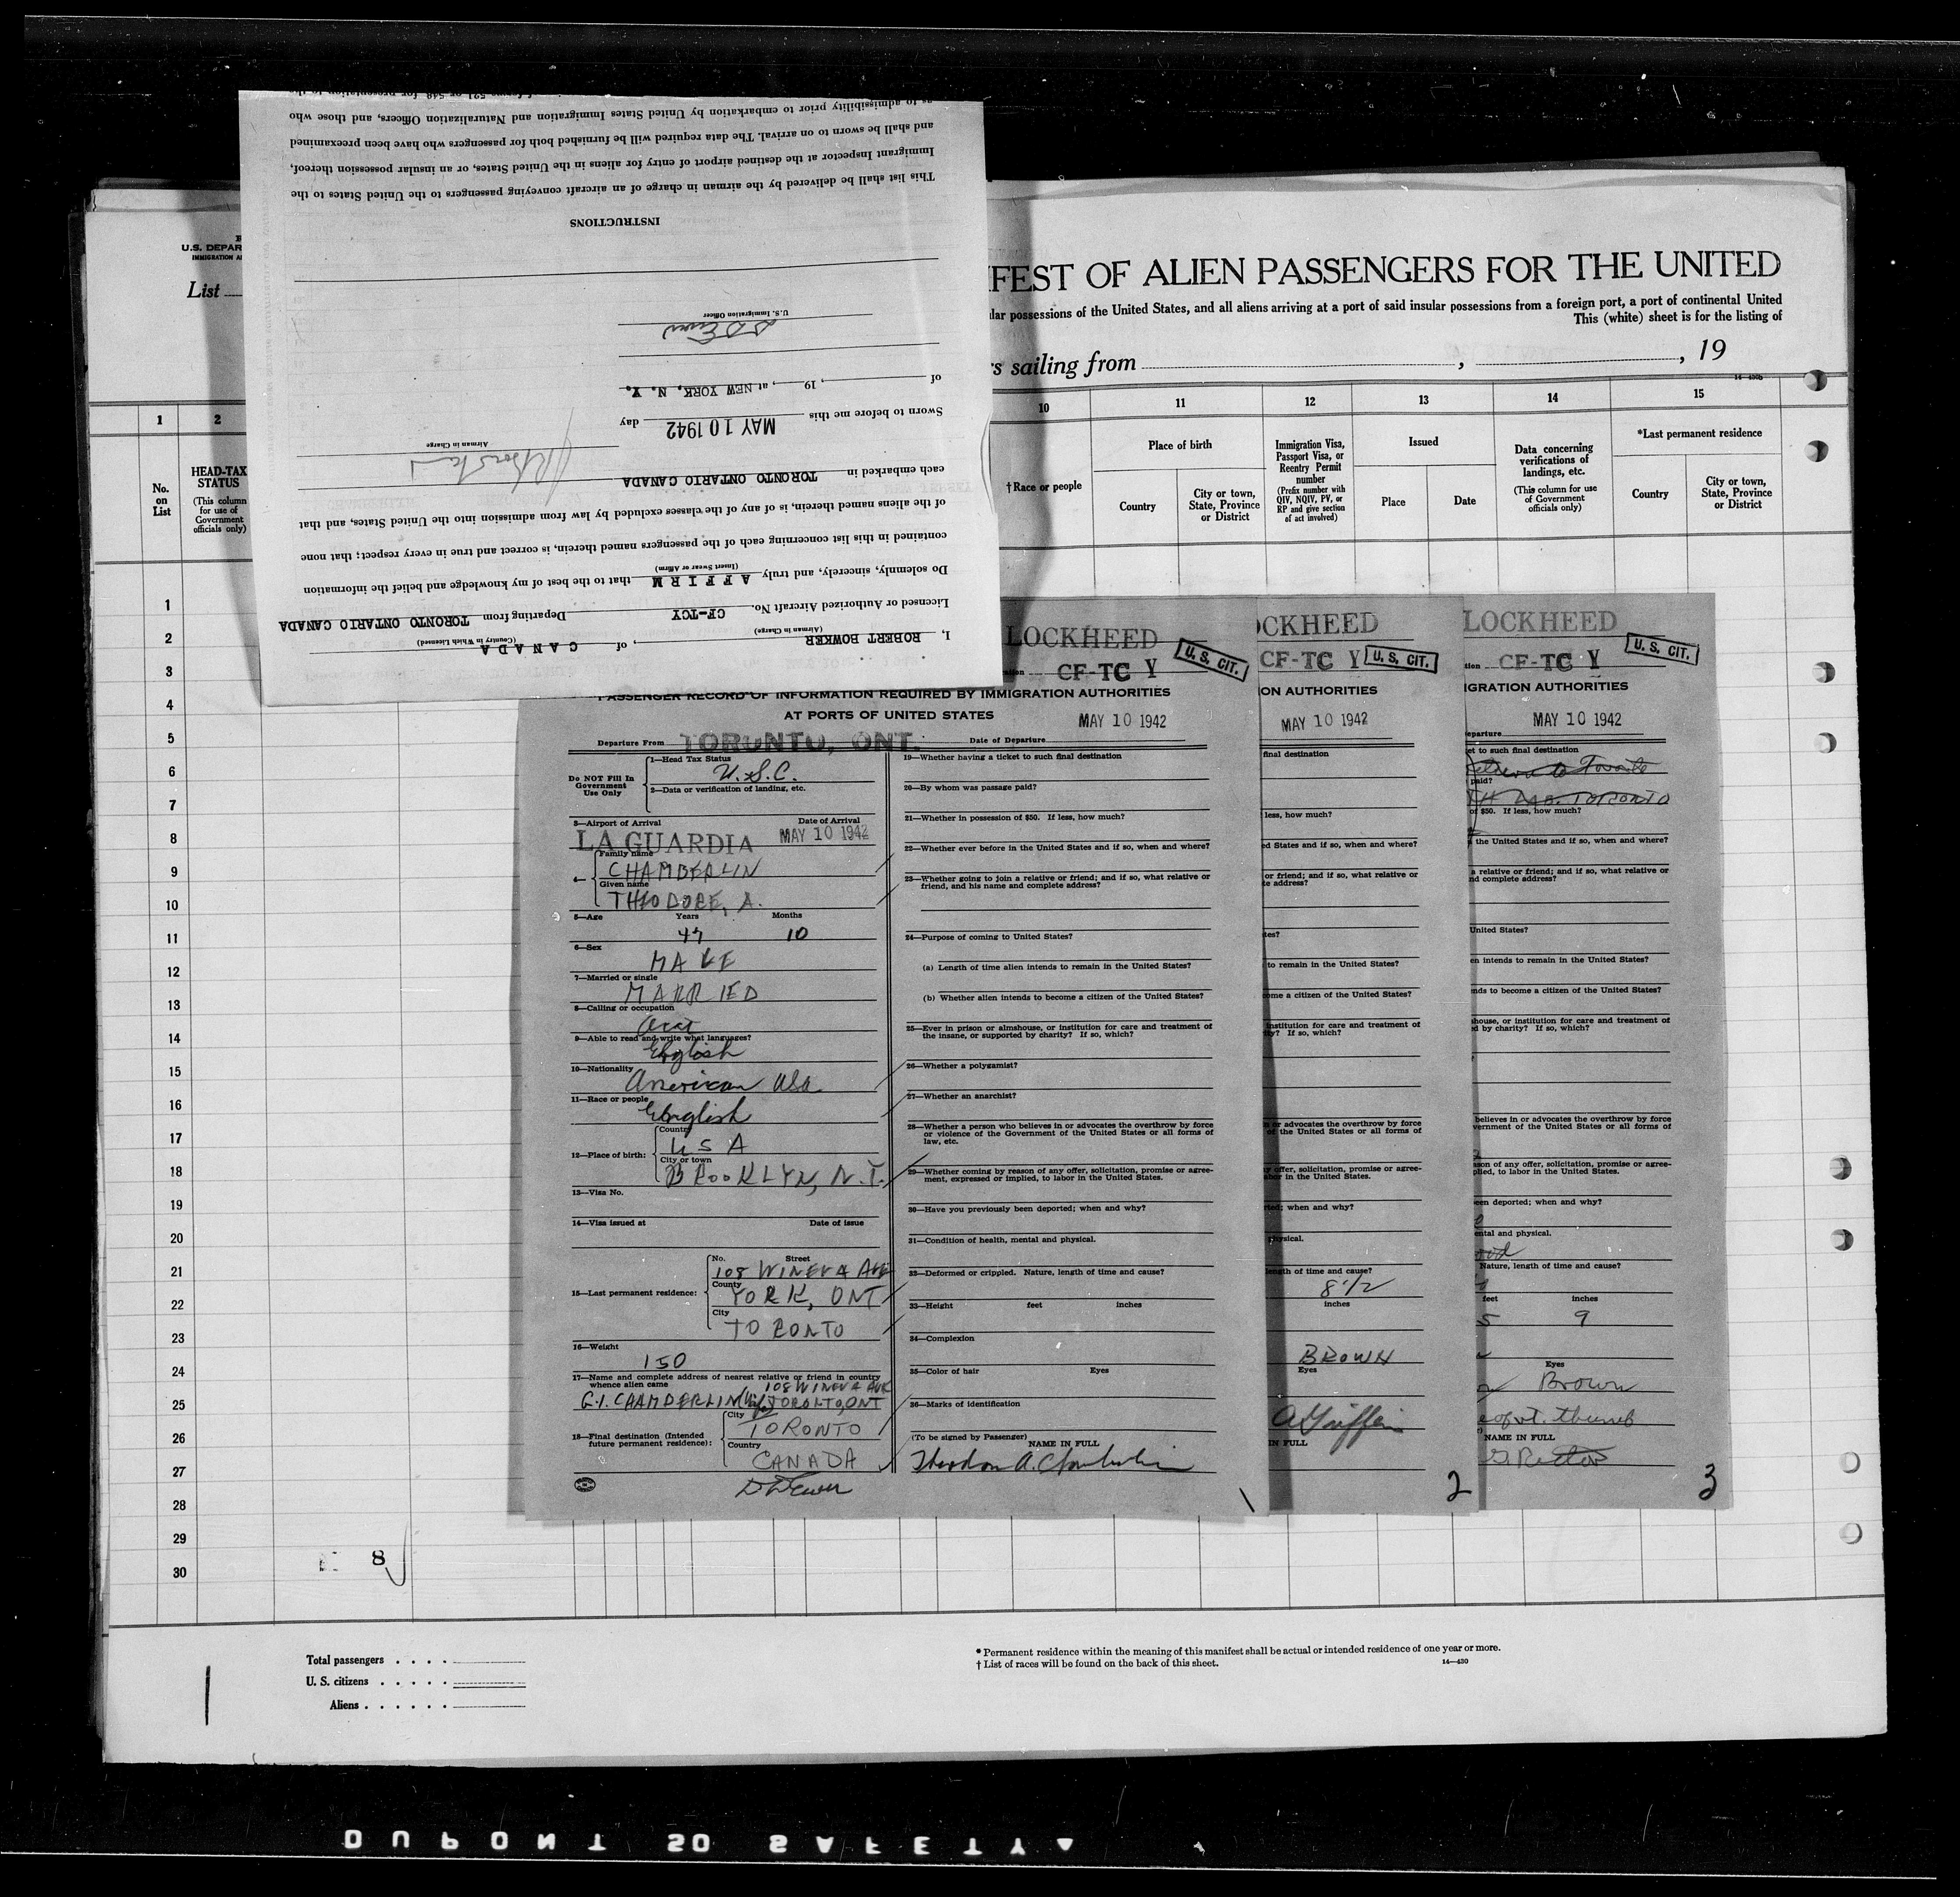 I, ROBERT BOWKER, of CANADA
(Airman in Charge) (Country in Which Licensed)
Licensed or Authorized Aircraft No. CF-TCY Departing from TORONTO ONTARIO CANADA
Do solemnly, sincerely, and truly AFFIRM that to the best of my knowledge and belief the information
(Insert Swear or Affirm)
contained in this list concerning each of the passengers named therein, is correct and true in every respect; that none
of the aliens named therein, is of any of the classes excluded by law from admission into the United States, and that
each embarked in TORONTO ONTARIO CANADA
Airman in Charge
Sworn to before me this MAY 10 1942 day
of , 19 , at NEW YORK, N. Y.
U. S. Immigration Officer
INSTRUCTIONS
This list shall be delivered by the airman in charge of an aircraft conveying passengers to the United States to the
Immigrant Inspector at the destined airport of entry for aliens in the United States, or an insular possession thereof,
and shall be sworn to on arrival. The data required will be furnished both for passengers who have been preexamined
as to admissibility prior to embarkation by United States Immigration and Naturalization Officers, and those who
U.S. DEPAR
IMMIGRATION A
List
FEST OF ALIEN PASSENGERS FOR THE UNITED
lar possessions of the United States, and all aliens arriving at a port of said insular possessions from a foreign port, a port of continental United
This (white) sheet is for the listing of
s sailing from , , 19
14-430b
1 2 10 11 12 13 14 15
No. on List
HEAD-TAX STATUS
(This column for use of Government officials only)
†Race or people
Place of birth
Country
City or town, State, Province or District
Immigration Visa, Passport Visa, or Reentry Permit number
(Prefix number with QIV, NQIV, PV, or RP and give section of act involved)
Issued
Place
Date
Data concerning verifications of landings, etc.
(This column for use of Government officials only)
*Last permanent residence
Country
City or town, State, Province or District
1
2
3
4
5
6
7
8
9
10
11
12
13
14
15
16
17
18
19
20
21
22
23
24
25
26
27
28
29
30
8
LOCKHEED
CF-TC Y
U. S. CIT.
PASSENGER RECORD OF INFORMATION REQUIRED BY IMMIGRATION AUTHORITIES
AT PORTS OF UNITED STATES
MAY 10 1942
Departure From TORONTO, ONT. Date of Departure
Do NOT Fill In Government Use Only
1—Head Tax Status
U.S.C.
2—Data or verification of landing, etc.
3—Airport of Arrival Date of Arrival
LA GUARDIA MAY 10 1942
4—
Family name
CHAMBERLIN
Given name
THEODORE, A.
5—Age Years Months
47 10
6—Sex
MALE
7—Married or single
MARRIED
8—Calling or occupation
9—Able to read and write what languages?
English
10—Nationality
American USA
11—Race or people
English
12—Place of birth:
Country
U S A
City or town
BROOKLYN, N.Y.
13—Visa No.
14—Visa issued at Date of issue
15—Last permanent residence:
No. Street
108 WINEVA AVE
County
YORK, ONT
City
TORONTO
16—Weight
150
17—Name and complete address of nearest relative or friend in country
whence alien came 108 WINEVA AVE
G.I. CHAMBERLIN (Wife) TORONTO, ONT
18—Final destination (Intended future permanent residence):
City
TORONTO
Country
CANADA
19—Whether having a ticket to such final destination
20—By whom was passage paid?
21—Whether in possession of $50. If less, how much?
22—Whether ever before in the United States and if so, when and where?
23—Whether going to join a relative or friend; and if so, what relative or
friend, and his name and complete address?
24—Purpose of coming to United States?
(a) Length of time alien intends to remain in the United States?
(b) Whether alien intends to become a citizen of the United States?
25—Ever in prison or almshouse, or institution for care and treatment of
the insane, or supported by charity? If so, which?
26—Whether a polygamist?
27—Whether an anarchist?
28—Whether a person who believes in or advocates the overthrow by force
or violence of the Government of the United States or all forms of
law, etc.
29—Whether coming by reason of any offer, solicitation, promise or agree-
ment, expressed or implied, to labor in the United States.
30—Have you previously been deported; when and why?
31—Condition of health, mental and physical.
32—Deformed or crippled. Nature, length of time and cause?
33—Height feet inches
34—Complexion
35—Color of hair Eyes
36—Marks of identification
(To be signed by Passenger)
NAME IN FULL
Theodore A. Chamberlin
1
OCKHEED
CF-TC Y
U. S. CIT.
ION AUTHORITIES
MAY 10 1942
final destination
less, how much?
ed States and if so, when and where?
or friend; and if so, what relative or
te address?
tes?
to remain in the United States?
ome a citizen of the United States?
institution for care and treatment of
ty? If so, which?
or advocates the overthrow by force
of the United States or all forms of
y offer, solicitation, promise or agree-
abor in the United States.
rted; when and why?
physical.
length of time and cause?
8 1/2
inches
BROWN
Eyes
A Griffin
IN FULL
2
LOCKHEED
tion CF-TC Y
U. S. CIT.
IGRATION AUTHORITIES
MAY 10 1942
eparture
et to such final destination
Return to Toronto
paid?
TORONTO
of $50. If less, how much?
the United States and if so, when and where?
a relative or friend; and if so, what relative or
nd complete address?
United States?
en intends to remain in the United States?
nds to become a citizen of the United States?
shouse, or institution for care and treatment of
d by charity? If so, which?
believes in or advocates the overthrow by force
vernment of the United States or all forms of
son of any offer, solicitation, promise or agree-
plied, to labor in the United States.
een deported; when and why?
ental and physical.
ood
Nature, length of time and cause?
feet inches
5 9
Eyes
Brown
thumb
NAME IN FULL
3
Total passengers . . . .
U. S. citizens . . . . .
Aliens . . . . . .
* Permanent residence within the meaning of this manifest shall be actual or intended residence of one year or more.
† List of races will be found on the back of this sheet.
14-430
DUPONT 50 SAFETY